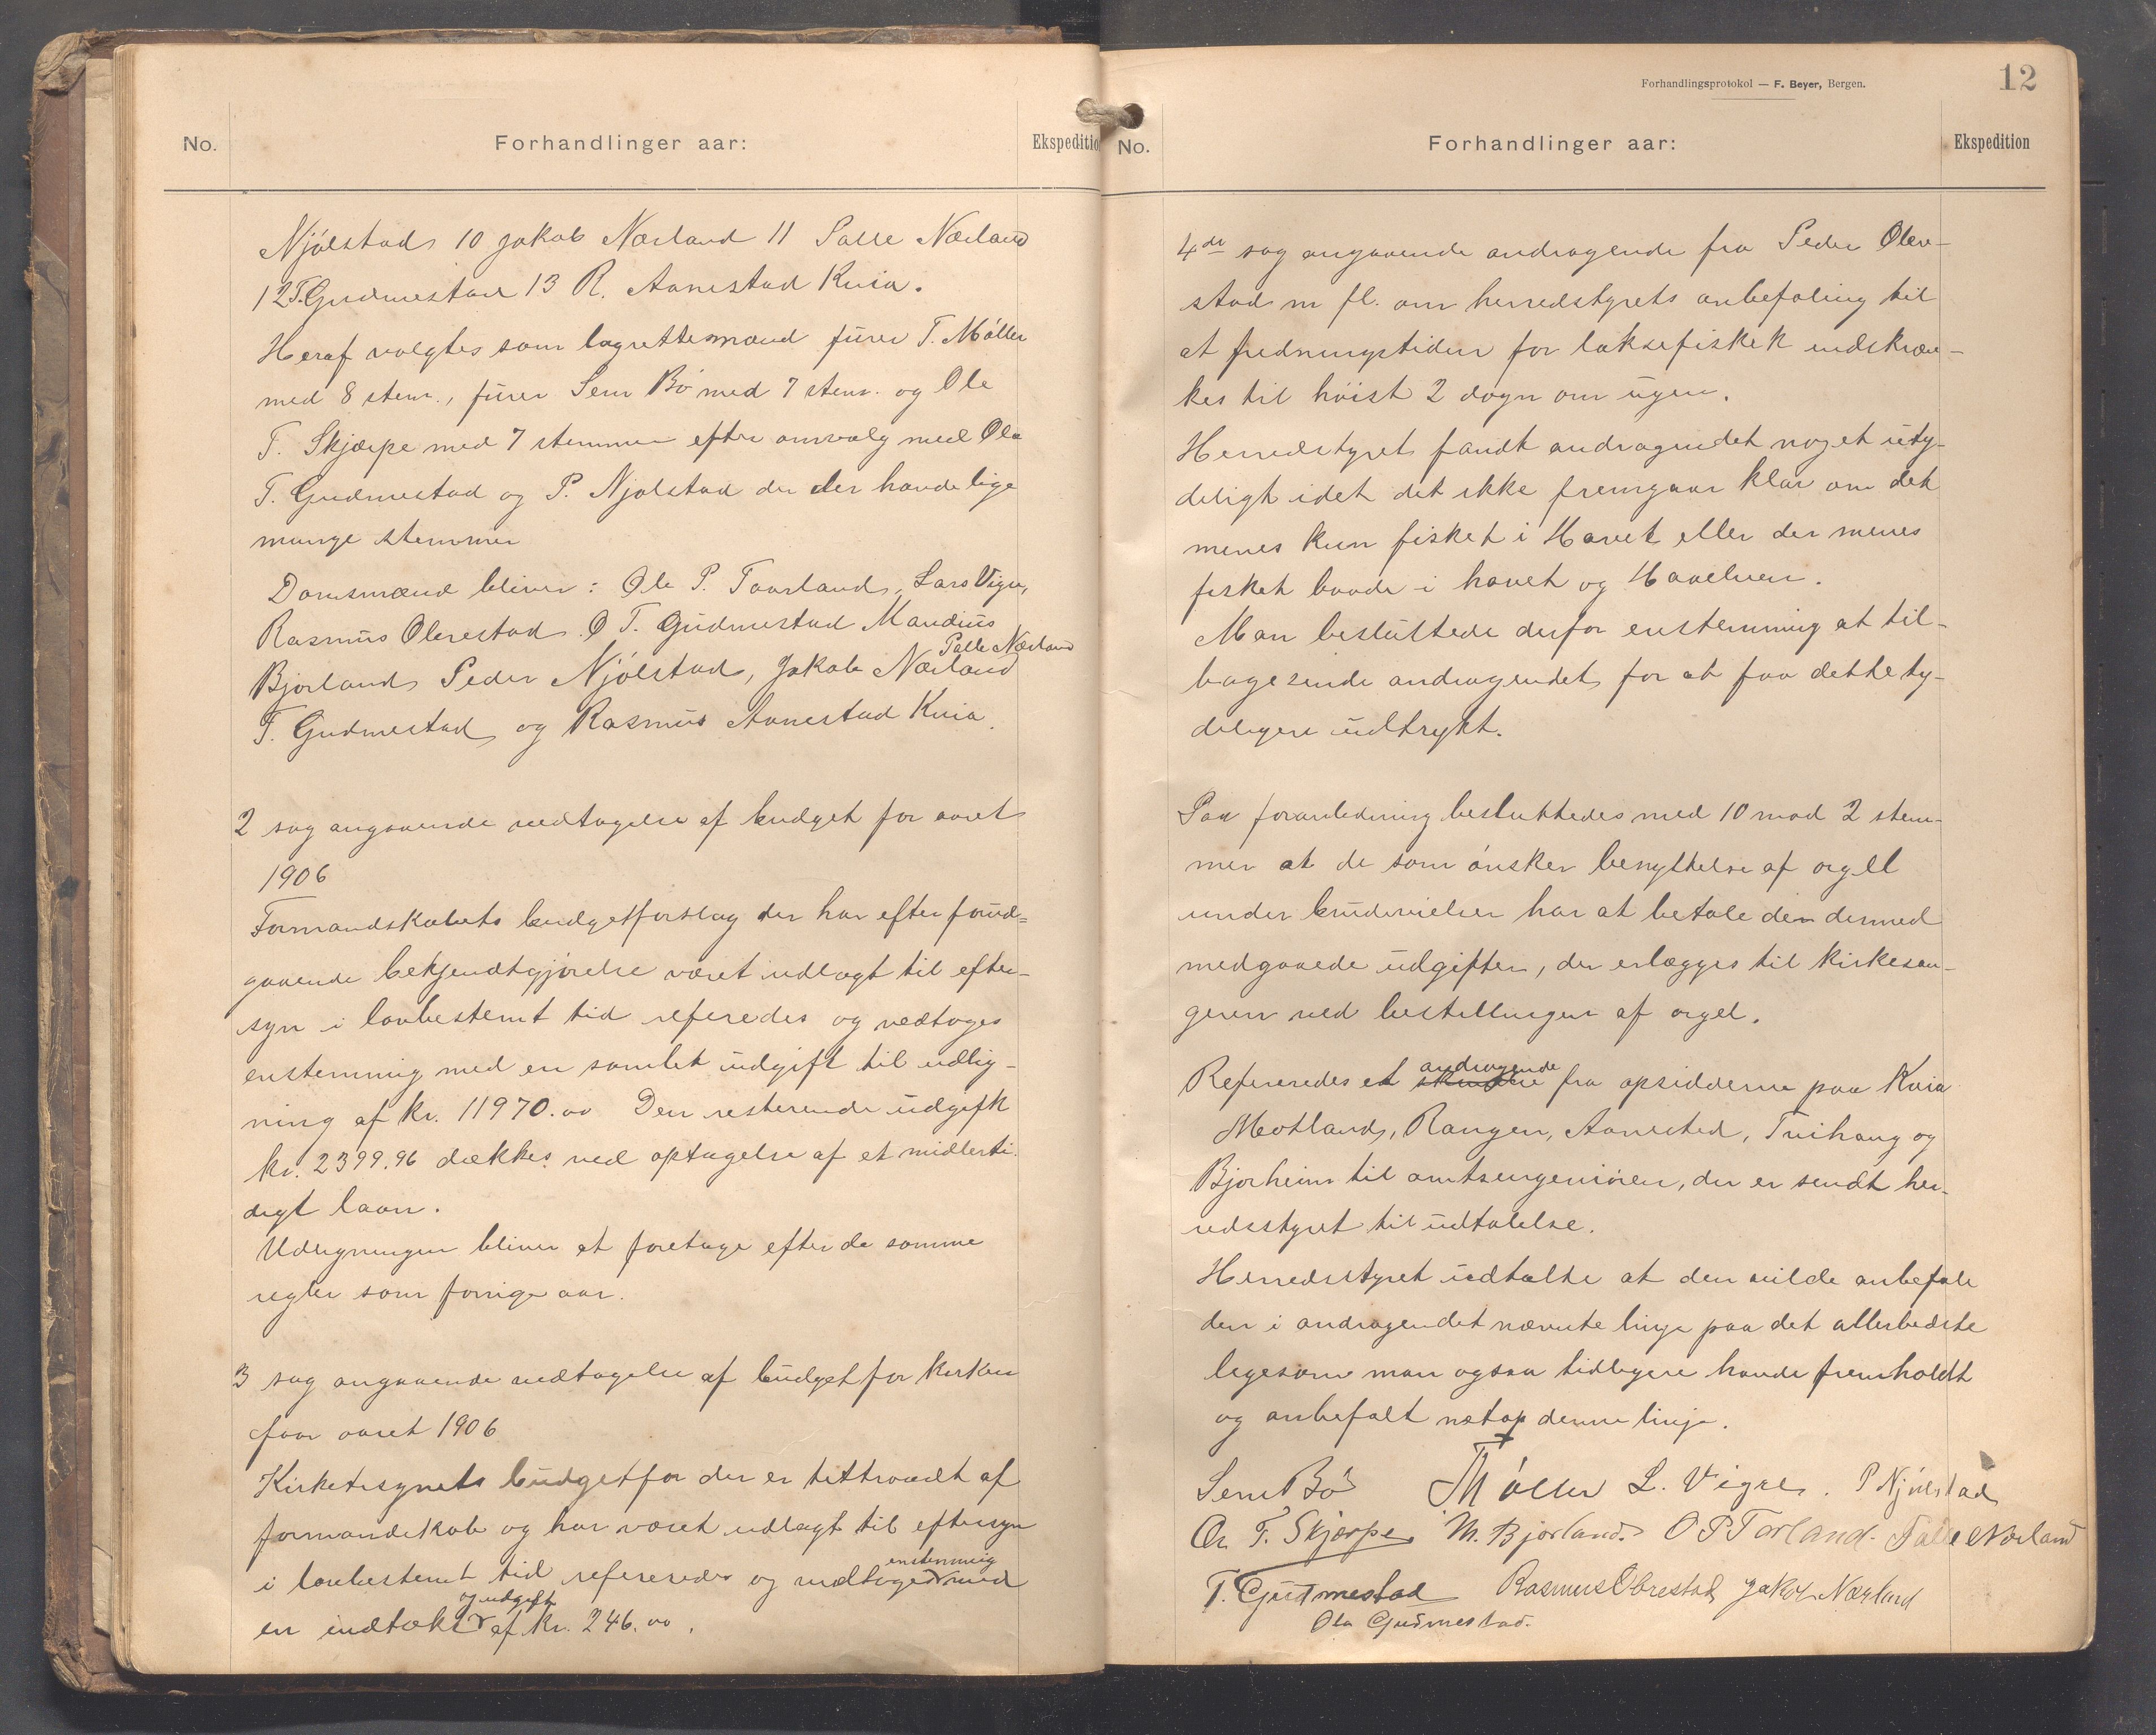 No.
Forhandlinger aar:
Ekspeditio
Njólstad 10 Jakob Nærland 11 Salle Nærland
12 T. Gudmestad 13 R. Aanestad Kvia.
Heraf valgtes som lagrettesmænd fürer T. Móller
med 8 stem., fürer Sem Bó med 7 stem. og Ole
T. Skjærpe med 7 stemmer efter omvalg med Ola
T. Gudmestad og P. Njolstad der der havde lige
mange stemmer
Domsmænd bliver: Ole P. Taarland, Lars Vigre,
Rasmus Obrestad O T. Gudmestad Mandius
Bjorland Peder Njólstad, Jakob Nærland Palle Nærland
T. Gudmestad og Rasmus Aanestad Kvia.
2 sag angaaende vedtagelse af budget for aaret
1906
Formandskabets budgetforslag der har efter forud=
gaaende bekjendtgjørelse været udlagt til efter-
syn i lovbestemt tid referedes og vedtoges
enstemmig med en samlet udgift til udlig-
ning af kr. 11970.00 Den resterende udgift
kr. 2399.96 dækkes ved optagelse af et midlerti-
digt laan.
Udligningen bliver at foretage efter de samme
regler som forrige aar.
3 sag angaaende vedtagelse af budget for kirken
for aaret 1906
Kirketilsynets budget for der er tiltraadt af
formandskab og har været udlagt til eftersyn
i lovbestemt tid refereredes og vedtoges enstemmig med
en indtækt og udgift af kr. 246.00.
Forhandlingsprotokol — F. Beyer, Bergen.
12
No.
Forhandlinger aar:
Ekspedition
4de sag angaaende andragende fra Peder Obre-
stad m fl. om herredstyrets anbefaling til
at fredningstiden for laksefisket indskræn-
kes til høist 2 døgn om ugen.
Herredstyret fandt andragendet noget uty-
deligt idet det ikke fremgaar klar om det
menes kun fisket i Havet eller der menes
fisket baade i havet og Haaelven.
Man besluttede derfor enstemmig at til-
bagesende andragendet for at faa dette ty-
deligere udtrykt.
Paa foranledning besluttedes med 10 mod 2 stem-
mer at de som ónsker benyttelse af orgel
under brudevielser har at betale den dermed
medgaaede udgifter, der erlægges til kirkesan-
geren ved bestillingen af orgel.
Refereredes et andragende fra opsidderne paa Kvia
Motland, Rangen, Aanestad, Tvihaug og
Bjorheim til amtsingeniören, der er sendt her-
redsstyret til udtalelse.
Herredsstyret udtalte at den vilde anbefale
den i andragendet nævnte linje paa det allerbedste
ligesom man ogsaa tidligere havde fremholdt
og anbefalt netop denne linje.
Sem Bó TMóller L. Vigre. P Njólstad
Ola T. Skjærpe M. Bjorland. O P Torland. Palle Nærland
T. Gudmestad Rasmus Obrestad Jakob Nærland
Ola Gudmestad.